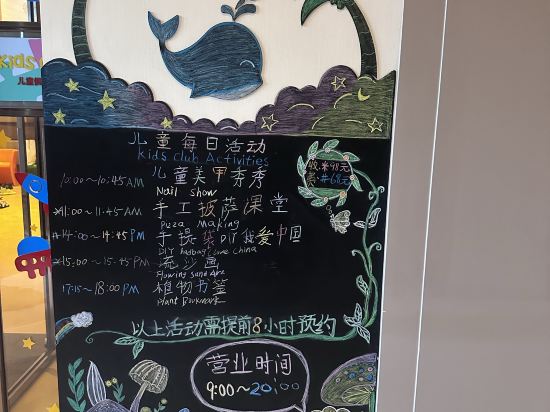 Kids
儿童俱
儿童每日活动
Kids club Activities
10:00~10:45AM 儿童美甲秀秀
Nail show
收米98元
*11:00~11:45AM 手工披萨课堂
Pizza Making
#14:00~14:45PM 手提袋DIY我爱中国
DIY handbag love China
*15:00~15:45PM 流沙画
Flowing Sand
17:15~18:00PM 植物书签
Plant Bookmark
以上活动需提前8小时预约
营业时间
9:00~20:00